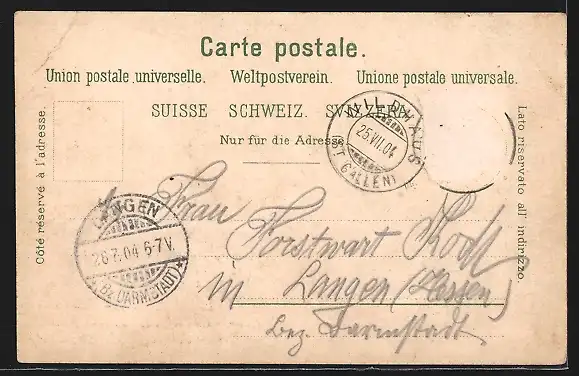 Carte postale.
Union postale universelle. Weltpostverein. Unione postale universale.
SUISSE SCHWEIZ. SVIZZERA.
Nur für die Adresse.
Côté réservé à l'adresse.
Lato riservato all' indirizzo.
WILDHAUS
25.VII.04
(ST. GALLEN)
LANGEN
26.7.04 6-7V.
(Bz. DARMSTADT)
Frau
Forstwart Koch
in Langen (Hessen)
Bez. Darmstadt